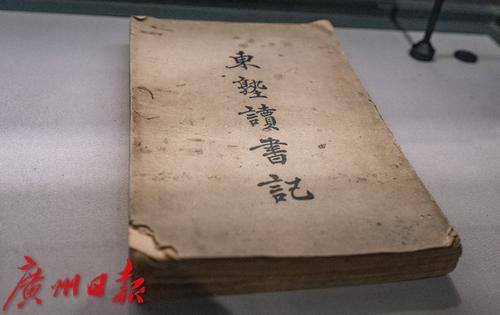 東塾讀書記
廣州日报